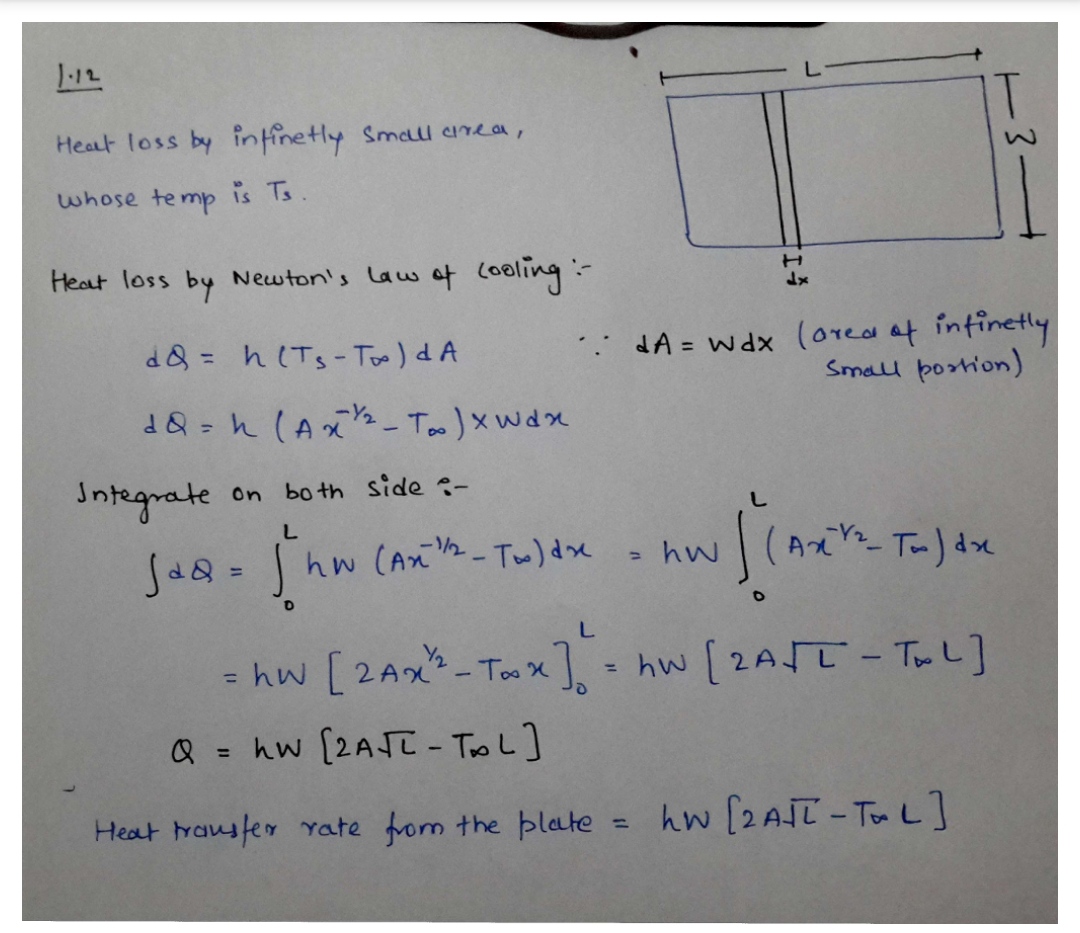 1.12
L
W
dx
Heat loss by infinetly small area,
whose temp is Ts.
Heat loss by Newton's law of cooling :-
dQ = h (Ts - T∞) dA ∵ dA = W dx (area of infinetly
small portion)
dQ = h (Ax^(-1/2) - T∞) × W dx
Integrate on both side :-
∫dQ = ∫₀ᴸ hW (Ax^(-1/2) - T∞) dx = hW ∫₀ᴸ (Ax^(-1/2) - T∞) dx
= hW [2Ax^(1/2) - T∞x]₀ᴸ = hW [2A√L - T∞L]
Q = hW [2A√L - T∞L]
Heat transfer rate from the plate = hW [2A√L - T∞L]